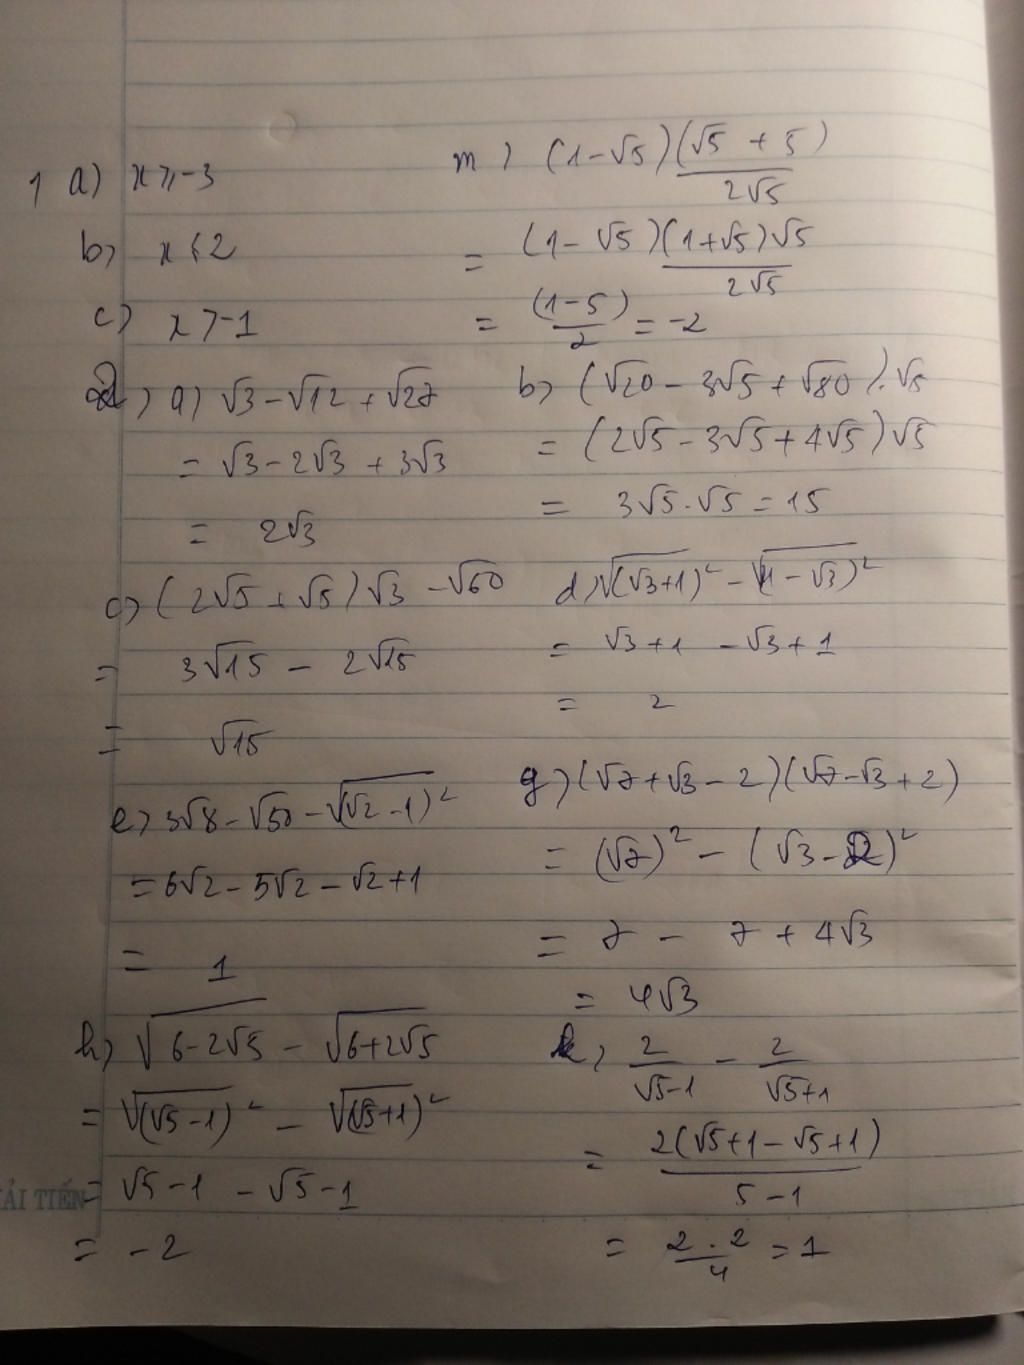 1 a) x ≥ -3
m) (1-√5)(√5 + 5)/2√5
b) x ≤ 2
= (1-√5)(1+√5)√5/2√5
c) x > -1
= (1-5)/2 = -2
2) a) √3 - √12 + √27
= √3 - 2√3 + 3√3
= 2√3
b) (√20 - 3√5 + √80).√5
= (2√5 - 3√5 + 4√5)√5
= 3√5.√5 = 15
c) (2√5 + √5)√3 - √60
= 3√15 - 2√15
= √15
d) √(√3+1)² - √(1-√3)²
= √3+1 - √3+1
= 2
e) 3√8 - √50 - √(√2-1)²
= 6√2 - 5√2 - √2+1
= 1
g) (√7+√3-2)(√7-√3+2)
= (√7)² - (√3-2)²
= 7 - 7 + 4√3
= 4√3
h) √6-2√5 - √6+2√5
= √(√5-1)² - √(√5+1)²
= √5-1 - √5-1
= -2
k) 2/√5-1 - 2/√5+1
= 2(√5+1-√5+1)/5-1
= 2.2/4 = 1
ẢI TIẾN